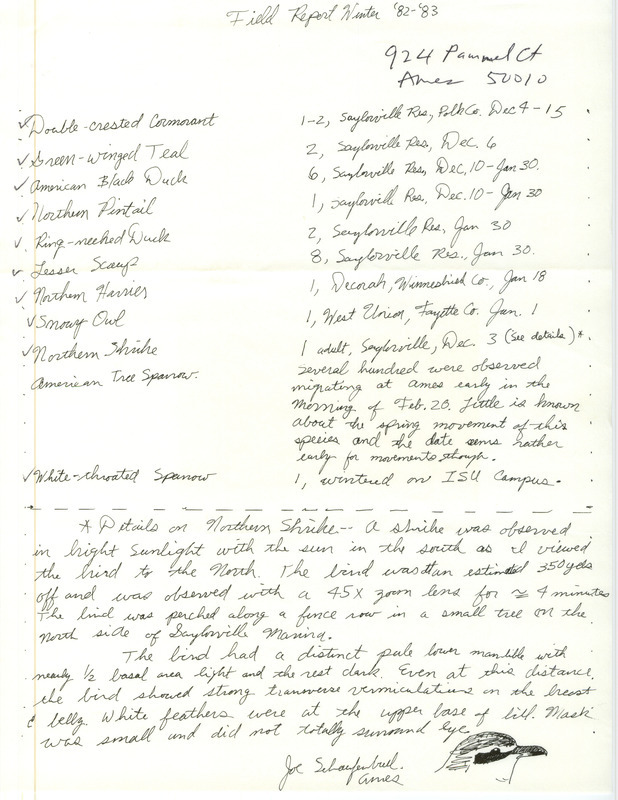 Field Report Winter '82-'83
924 Pammel Ct
Ames 50010
✓Double-crested Cormorant 1-2, Saylorville Res, Polk Co. Dec 4-15
✓Green-winged Teal 2, Saylorville Res, Dec. 6
✓American Black Duck 6, Saylorville Res, Dec. 10-Jan 30.
✓Northern Pintail 1, Saylorville Res, Dec. 10-Jan 30
✓Ring-necked Duck 2, Saylorville Res, Jan 30
✓Lesser Scaup 8, Saylorville Res., Jan 30.
✓Northern Harrier 1, Decorah, Winneshiek Co., Jan 18
✓Snowy Owl 1, West Union, Fayette Co. Jan. 1
✓Northern Shrike 1 adult, Saylorville, Dec. 3 (see details)*.
American Tree Sparrow. Several hundred were observed
migrating at Ames early in the
morning of Feb. 20. Little is known
about the spring movement of this
species and the date sems rather
early for movements though.
✓White-throated Sparrow 1, wintered on ISU Campus.
* Details on Northern Shrike-- A shrike was observed
in bright sunlight with the sun in the south as I viewed
the bird to the North. The bird was at an estimated 350 yds
off and was observed with a 45X zoom lens for ≈ 4 minutes
The bird was perched along a fence row in a small tree on the
north side of Saylorville Marina.
The bird had a distinct pale lower mandible with
nearly 1/2 basal area light and the rest dark. Even at this distance,
the bird showed strong transverse vermiculations on the breast
& belly. White feathers were at the upper base of bill. Mask
was small and did not totally surround eye.
Joe Schaufenbuel
Ames